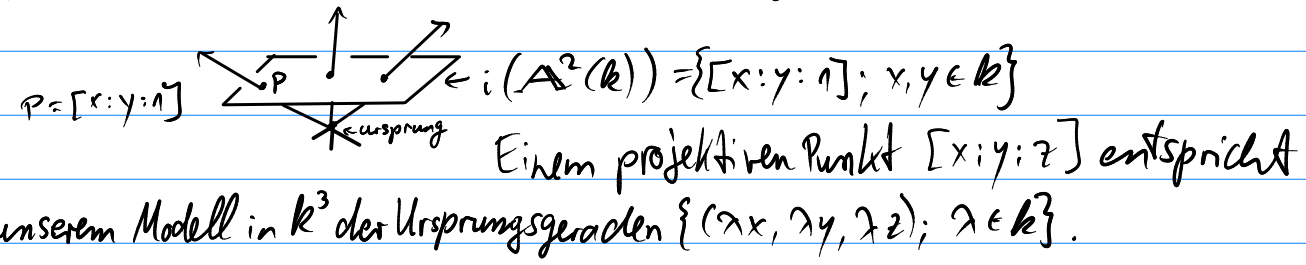 P
← i(𝔸²(k)) = {[x:y:1]; x,y ∈ k}
P=[x:y:1]
← Ursprung
Einem projektiven Punkt [x:y:z] entspricht
unserem Modell in k³ der Ursprungsgeraden {(λx, λy, λz); λ ∈ k}.